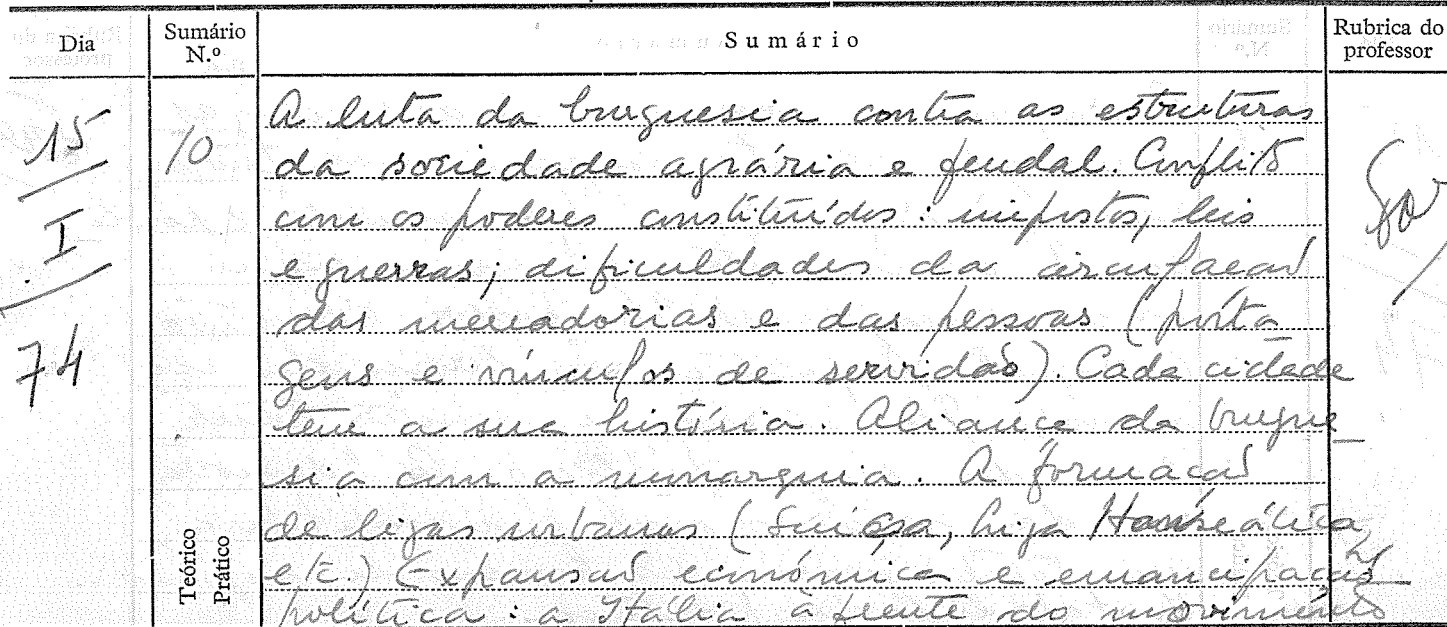 Dia
Sumário N.º
Sumário
Rubrica do professor
15
I
74
10
A luta da burguesia contra as estruturas
da sociedade agrária e feudal. Conflito
com os poderes constituídos: impostos, leis
e guerras; dificuldades da circulação
das mercadorias e das pessoas (porta
gens e vínculos de servidão). Cada cidade
tem a sua história. Aliança da burgue
sia com a monarquia. A formação
de ligas urbanas (Suiça, Liga Hanseática,
etc.) Expansão económica e emancipação
política: a Itália à frente do movimento
Teórico
Prático